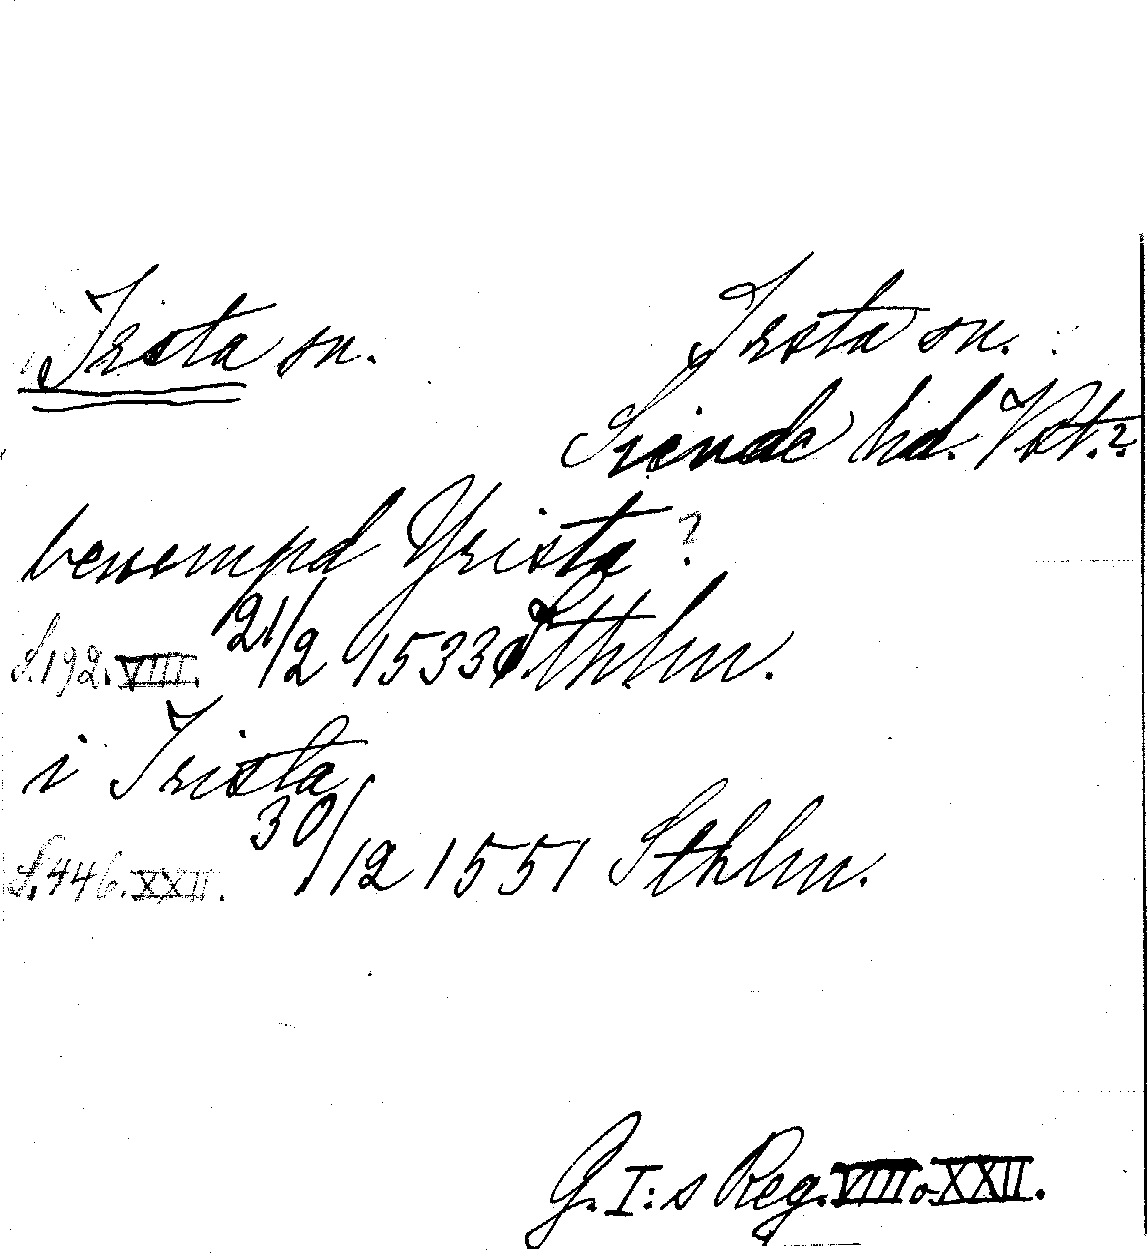 Irsta sn. Irsta sn.
Siende hd. Vstm.?
benempd Yrista?
S. 192. VIII. 21/2 1533 Sthlm.
i Irista
S. 446. XXII. 30/12 1551 Sthlm.
G. I:s Reg. VIII o. XXII.